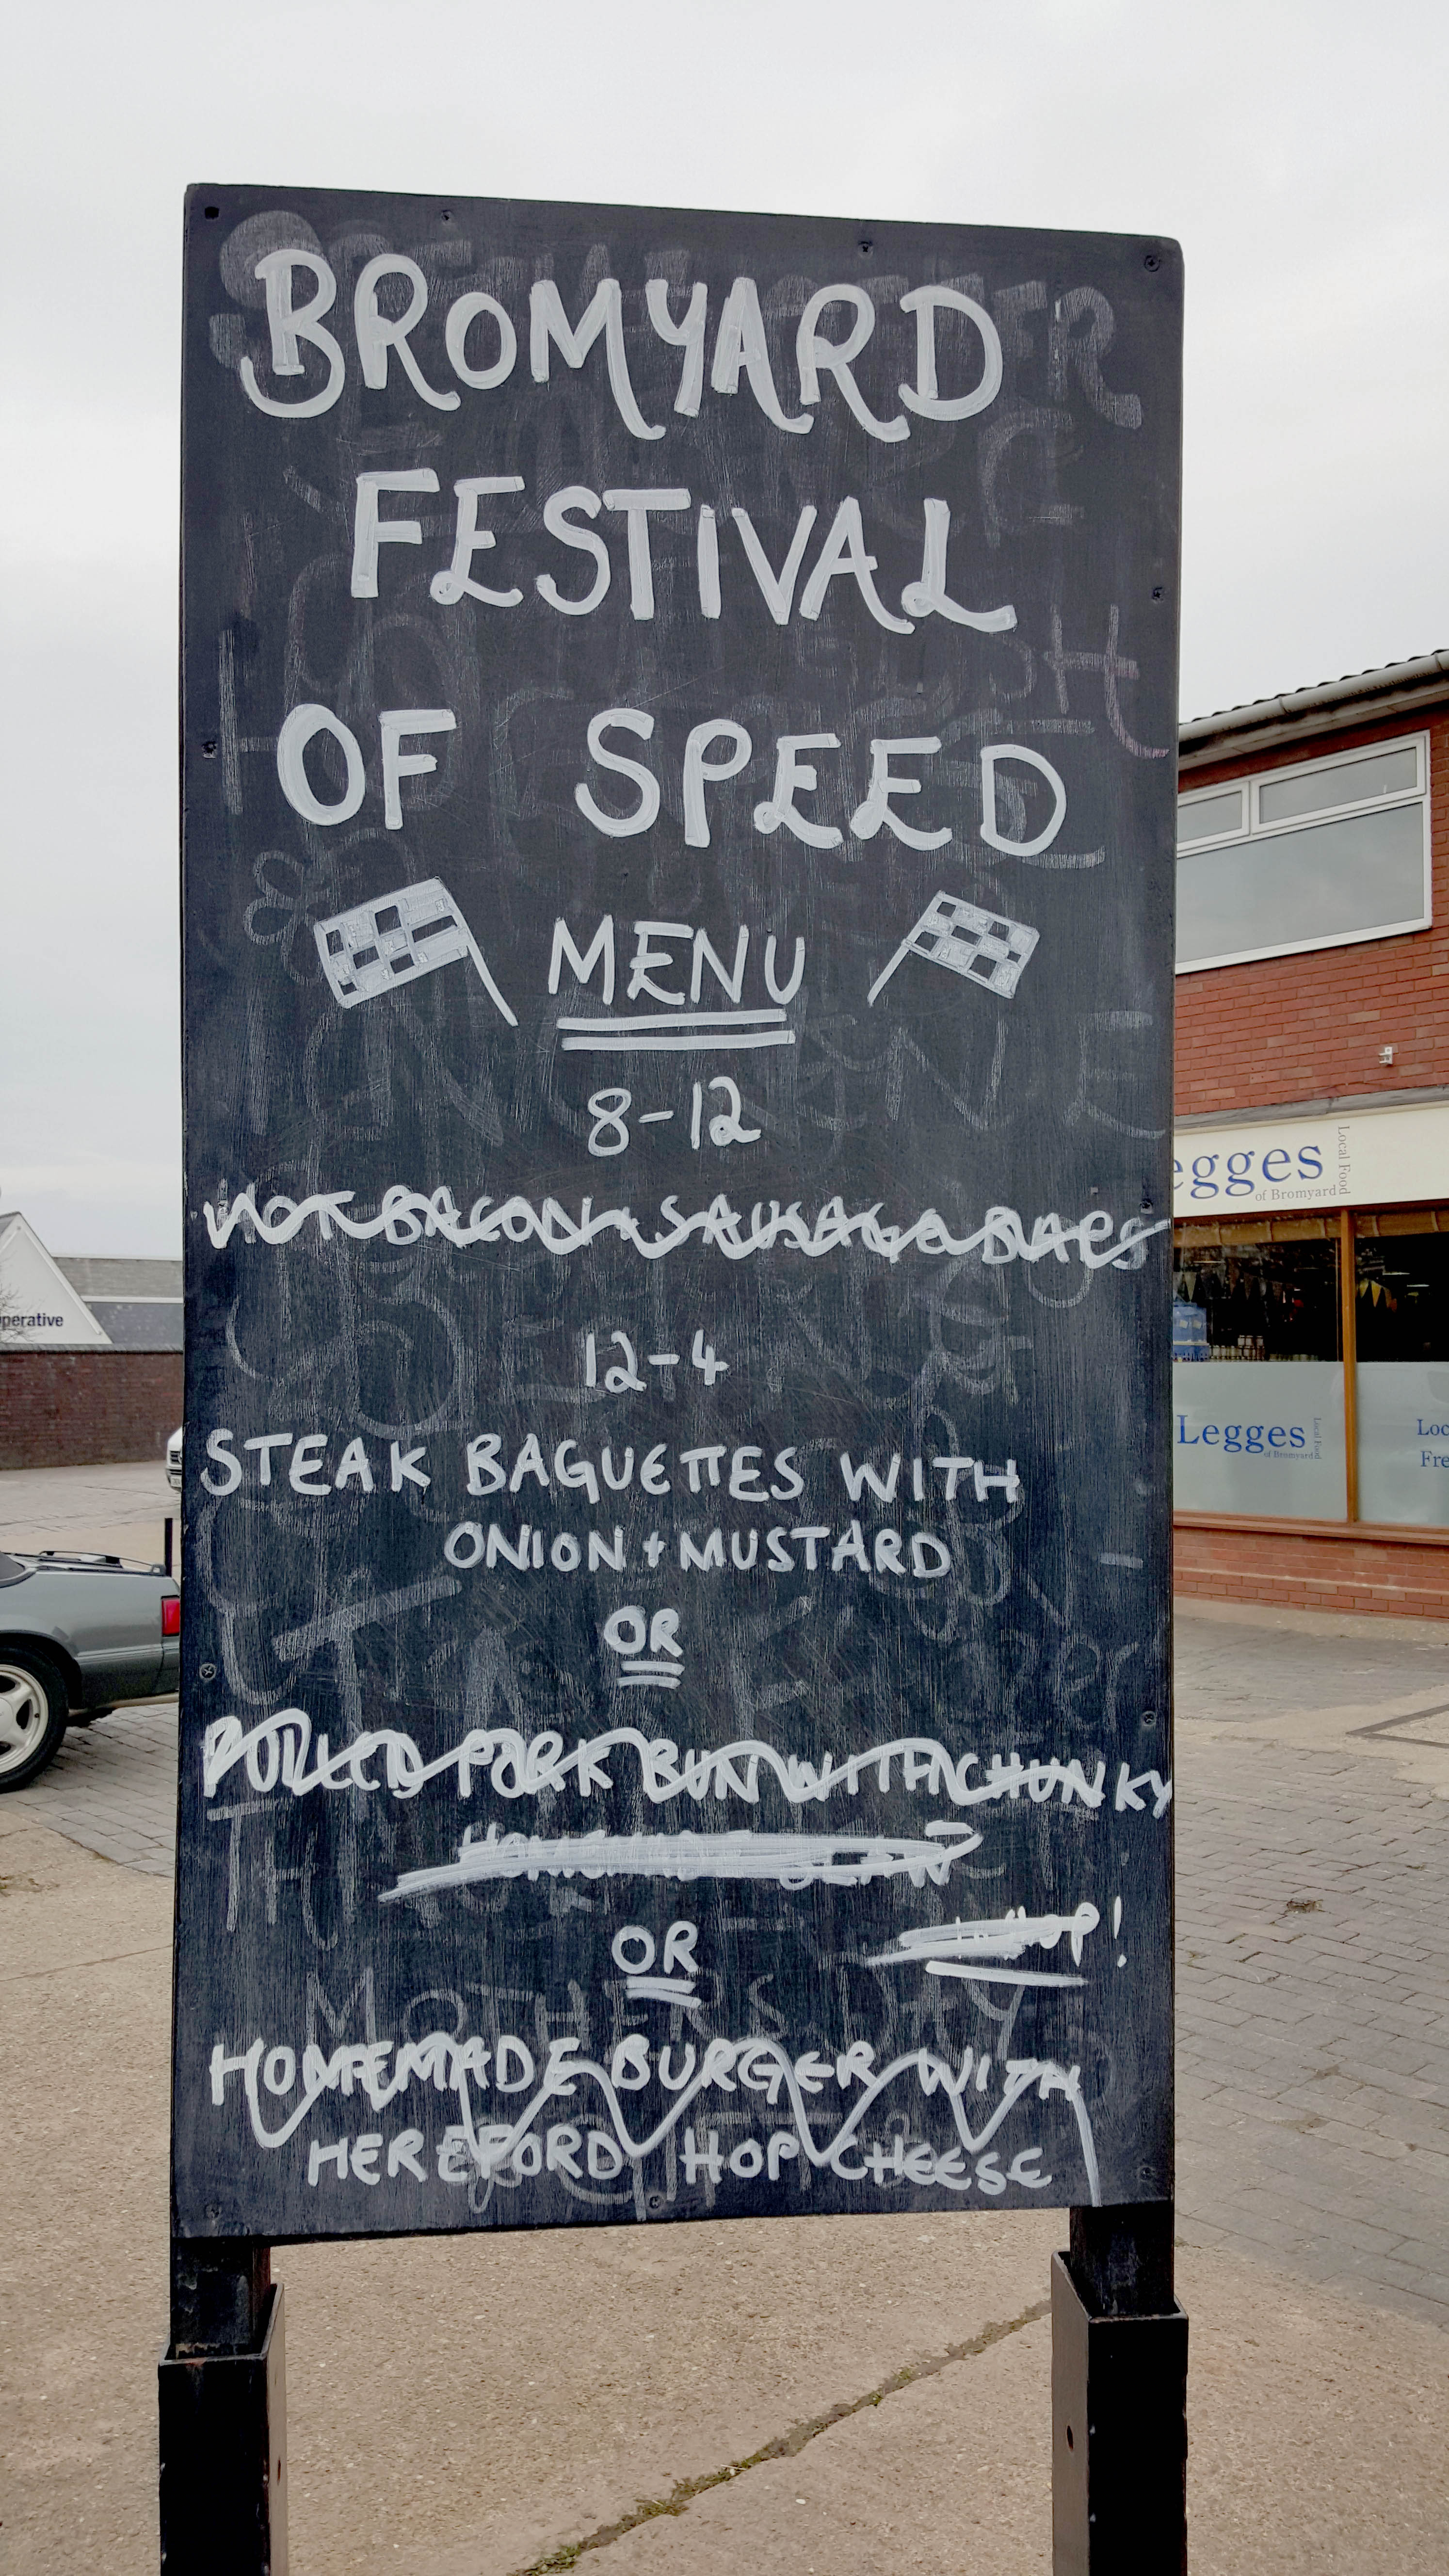 BROMYARD
FESTIVAL
OF SPEED
MENU
8-12
HOT BACON + SAUSAGE BAPS
12-4
STEAK BAGUETTES WITH
ONION + MUSTARD
OR
PULLED PORK BUN WITH CHUNKY
SLAW
OR
HOMEMADE BURGER WITH
HEREFORD HOP CHEESE
MOTHERS DAY
egges
Local Food
of Bromyard
Legges
Local Food
of Bromyard
Loc
Fre
perative